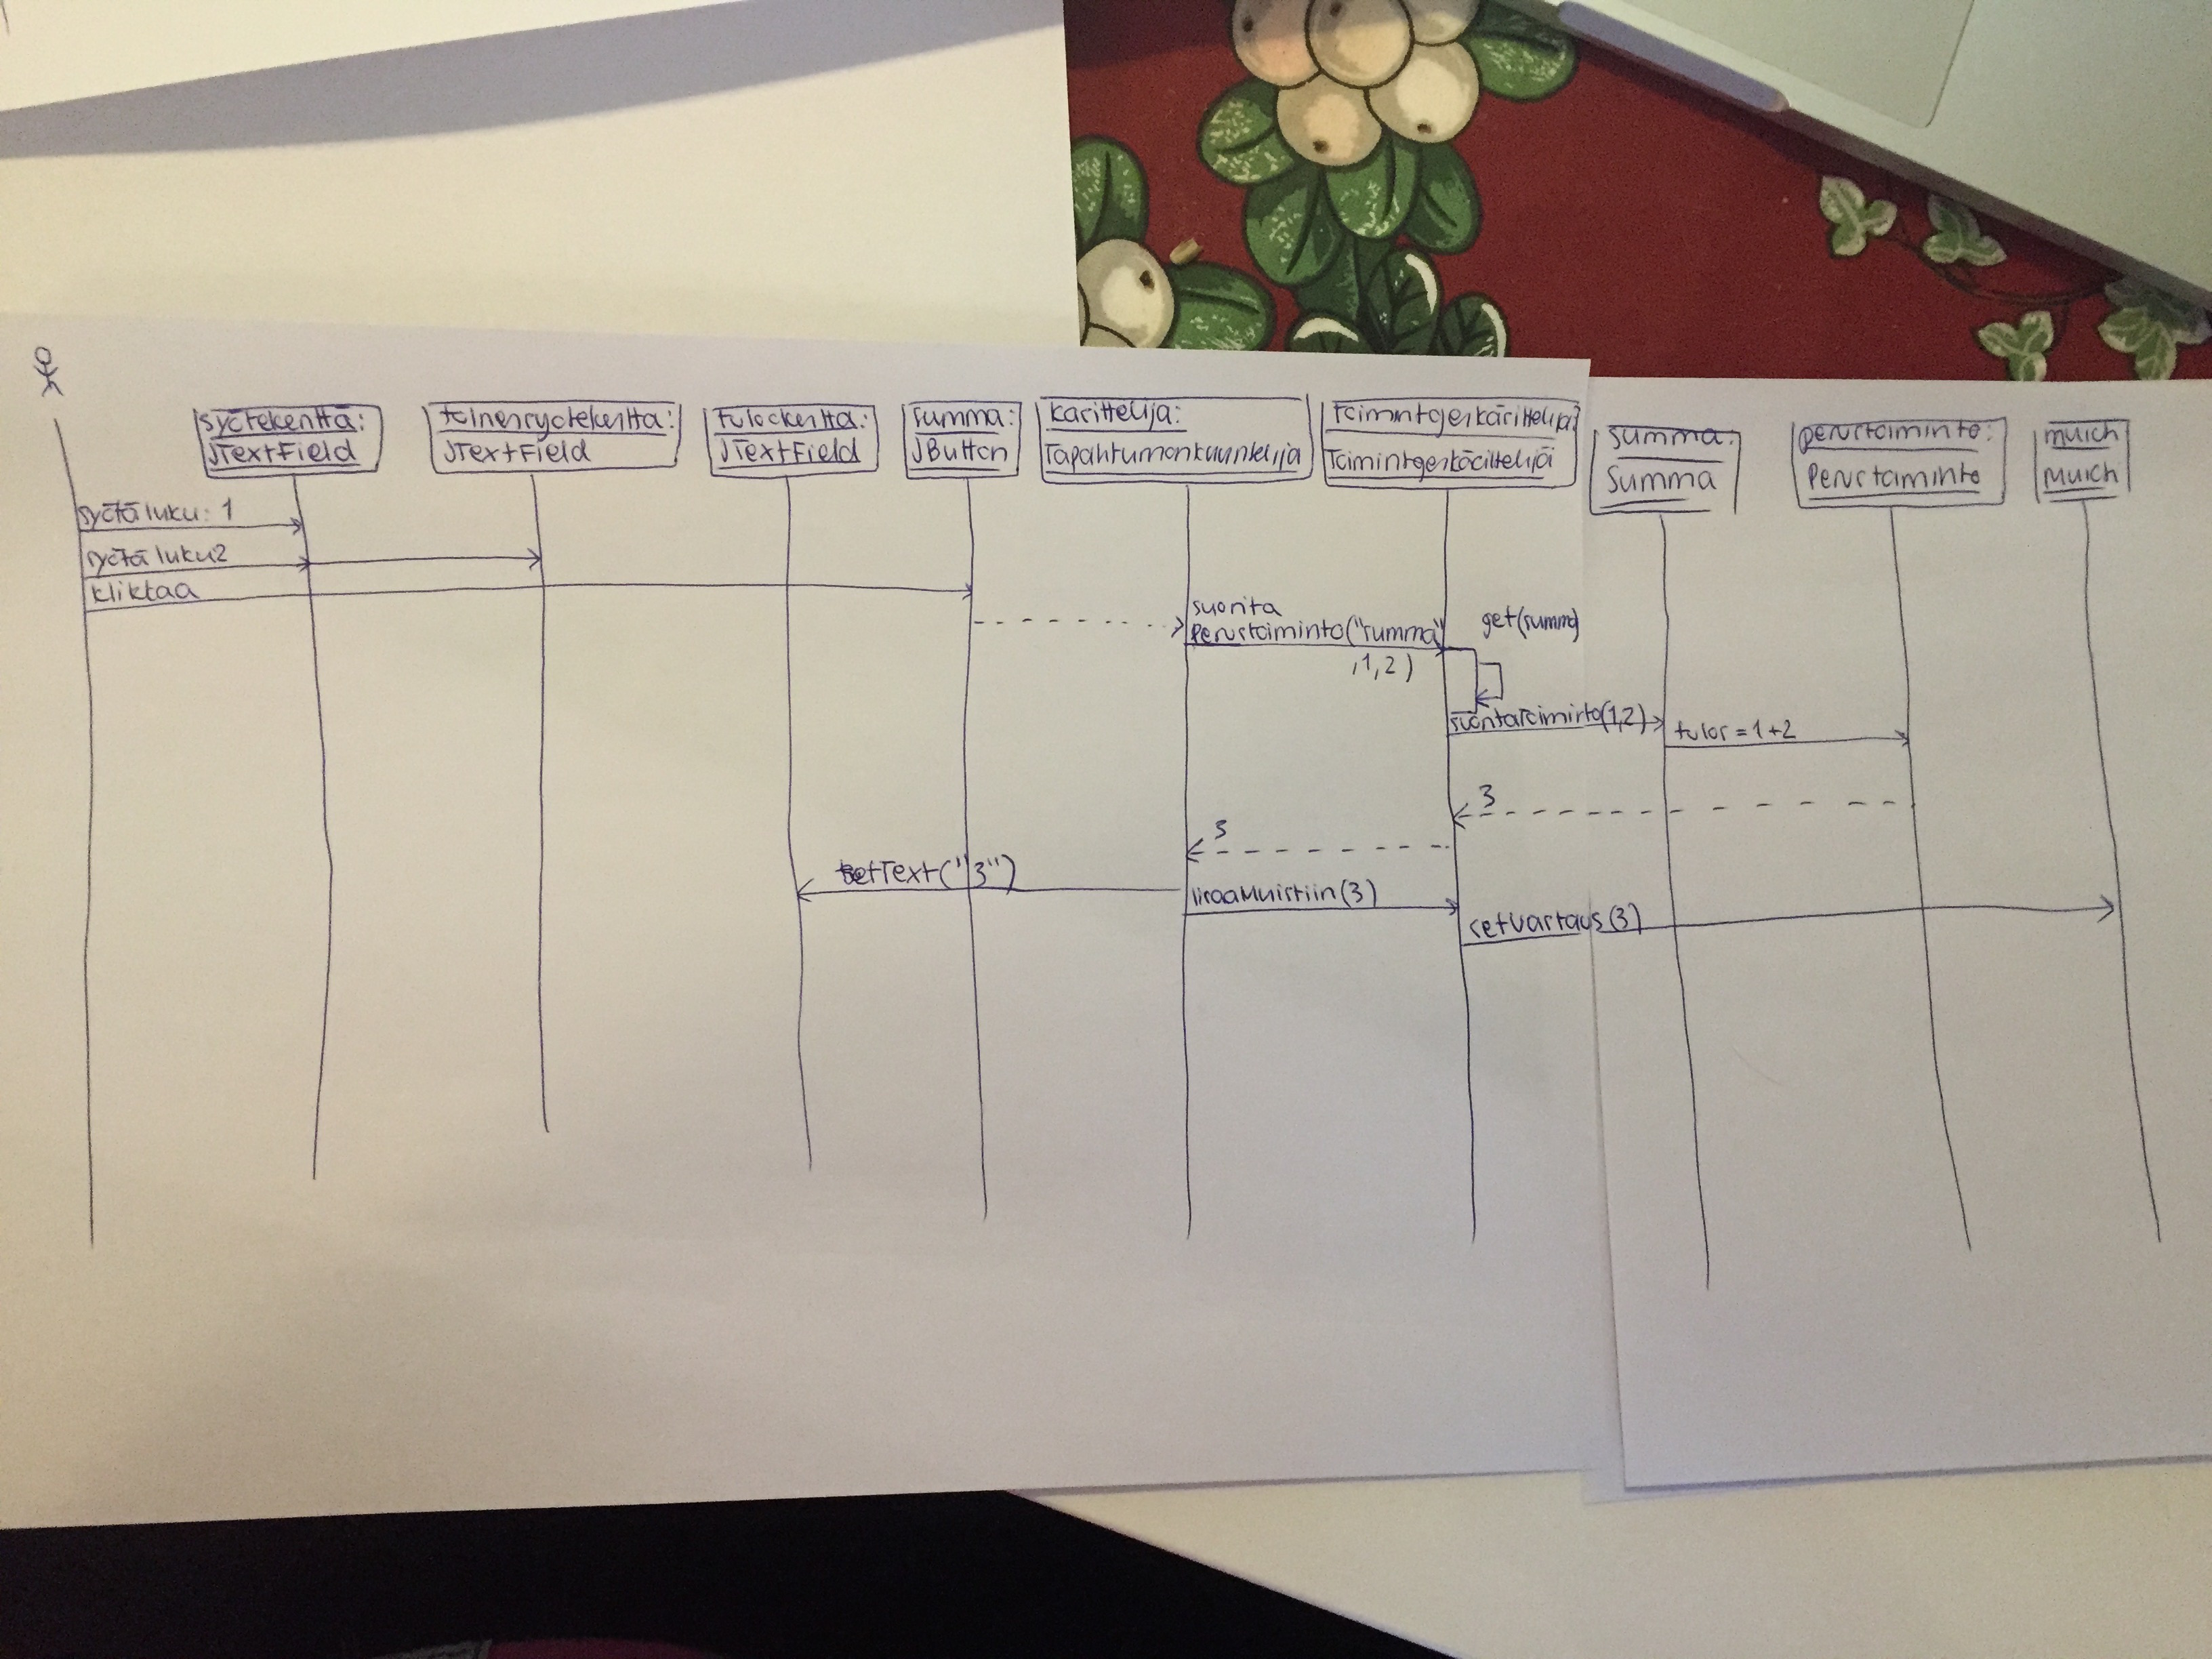 syötekenttä:
JTextField
toinensyötekenttä:
JTextField
tuloskenttä:
JTextField
summa:
JButton
käsittelijä:
Tapahtumankuuntelija
toimintojenkäsittelijä:
Toimintojenkäsittelijä
summa:
Summa
perustoiminto:
Perustoiminto
muisti
Muisti
syötä luku: 1
syötä luku 2
klikkaa
suorita
perustoiminto("summa"
,1,2)
get(summa)
suoritaToiminto(1,2)
tulos = 1+2
3
3
setText("3")
lisaaMuistiin(3)
setVastaus(3)